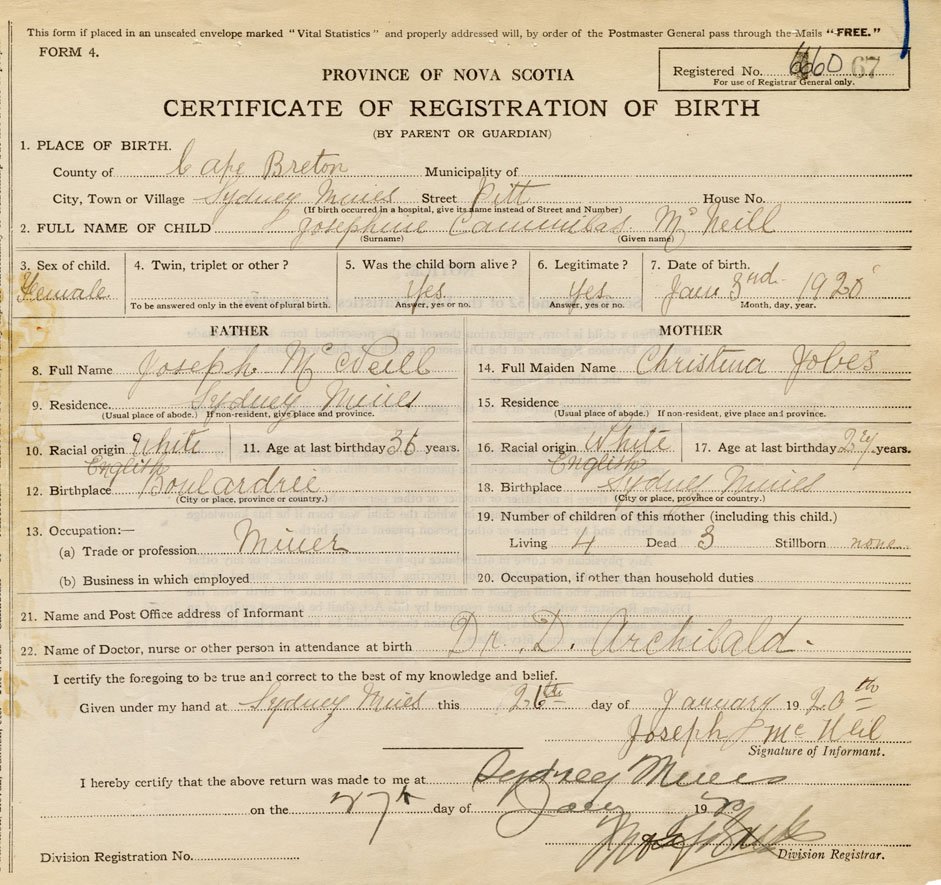 This form if placed in an unsealed envelope marked "Vital Statistics" and properly addressed will, by order of the Postmaster General pass through the Mails "FREE."
FORM 4.
Registered No. 660 67
For use of Registrar General only.
PROVINCE OF NOVA SCOTIA
CERTIFICATE OF REGISTRATION OF BIRTH
(BY PARENT OR GUARDIAN)
1. PLACE OF BIRTH.
County of Cape Breton Municipality of
City, Town or Village Sydney Mines Street Pitt House No.
(If birth occurred in a hospital, give its name instead of Street and Number)
2. FULL NAME OF CHILD Josephine McNeill
(Surname) (Given name)
3. Sex of child. 4. Twin, triplet or other? 5. Was the child born alive? 6. Legitimate? 7. Date of birth.
Female Yes Yes Jan 3rd 1920
To be answered only in the event of plural birth. Answer, yes or no. Answer, yes or no. Month, day, year.
FATHER MOTHER
8. Full Name Joseph McNeill 14. Full Maiden Name Christina Jobes
9. Residence. Sydney Mines 15. Residence
(Usual place of abode.) If non-resident, give place and province. (Usual place of abode.) If non-resident, give place and province.
10. Racial origin White 11. Age at last birthday 36 years. 16. Racial origin White 17. Age at last birthday years.
English English
12. Birthplace Boulardrie 18. Birthplace Sydney Mines
(City or place, province or country.) (City or place, province or country.)
13. Occupation:— 19. Number of children of this mother (including this child.)
(a) Trade or profession Miner Living 4 Dead 3 Stillborn none
(b) Business in which employed 20. Occupation, if other than household duties
21. Name and Post Office address of Informant
22. Name of Doctor, nurse or other person in attendance at birth Dr. D. Archibald.
I certify the foregoing to be true and correct to the best of my knowledge and belief.
Given under my hand at Sydney Mines this 26th day of January 1920th
Joseph McNeil
Signature of Informant.
I hereby certify that the above return was made to me at Sydney Mines
on the 27th day of Jany 1920
Division Registration No. Division Registrar.